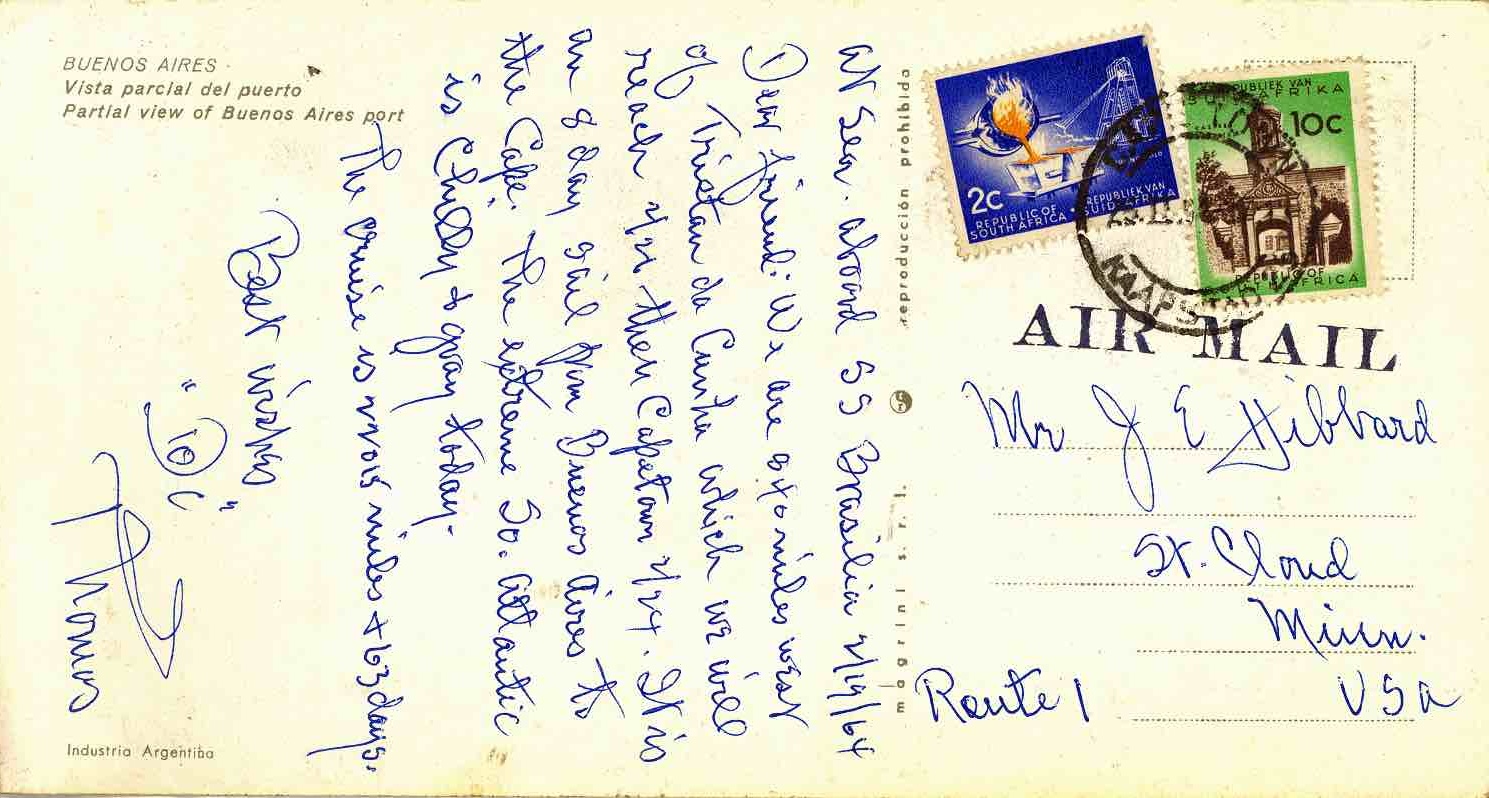 BUENOS AIRES
Vista parcial del puerto
Partial view of Buenos Aires port
At Sea. Aboard SS Brasilia 2/19/64
Dear friend: We are miles west
of Tristan da Cunha which we will
reach 2/21 then Capetown 2/24. It is
an 8 day sail from Buenos Aires to
the Cape. The extreme So. Atlantic
is chilly & gray today.
The cruise is miles & 63 days.
Best wishes
"Doc"
Thomas
Industria Argentina
reproducción prohibida
magrini s. r. l.
2c
REPUBLIC OF SOUTH AFRICA · REPUBLIEK VAN SUID-AFRIKA
REPUBLIEK VAN
SUID-AFRIKA
10c
REPUBLIC OF
SOUTH AFRICA
KAAPSTAD
AIR MAIL
Mr J E Hibbard
St. Cloud
Minn.
Route 1 USA